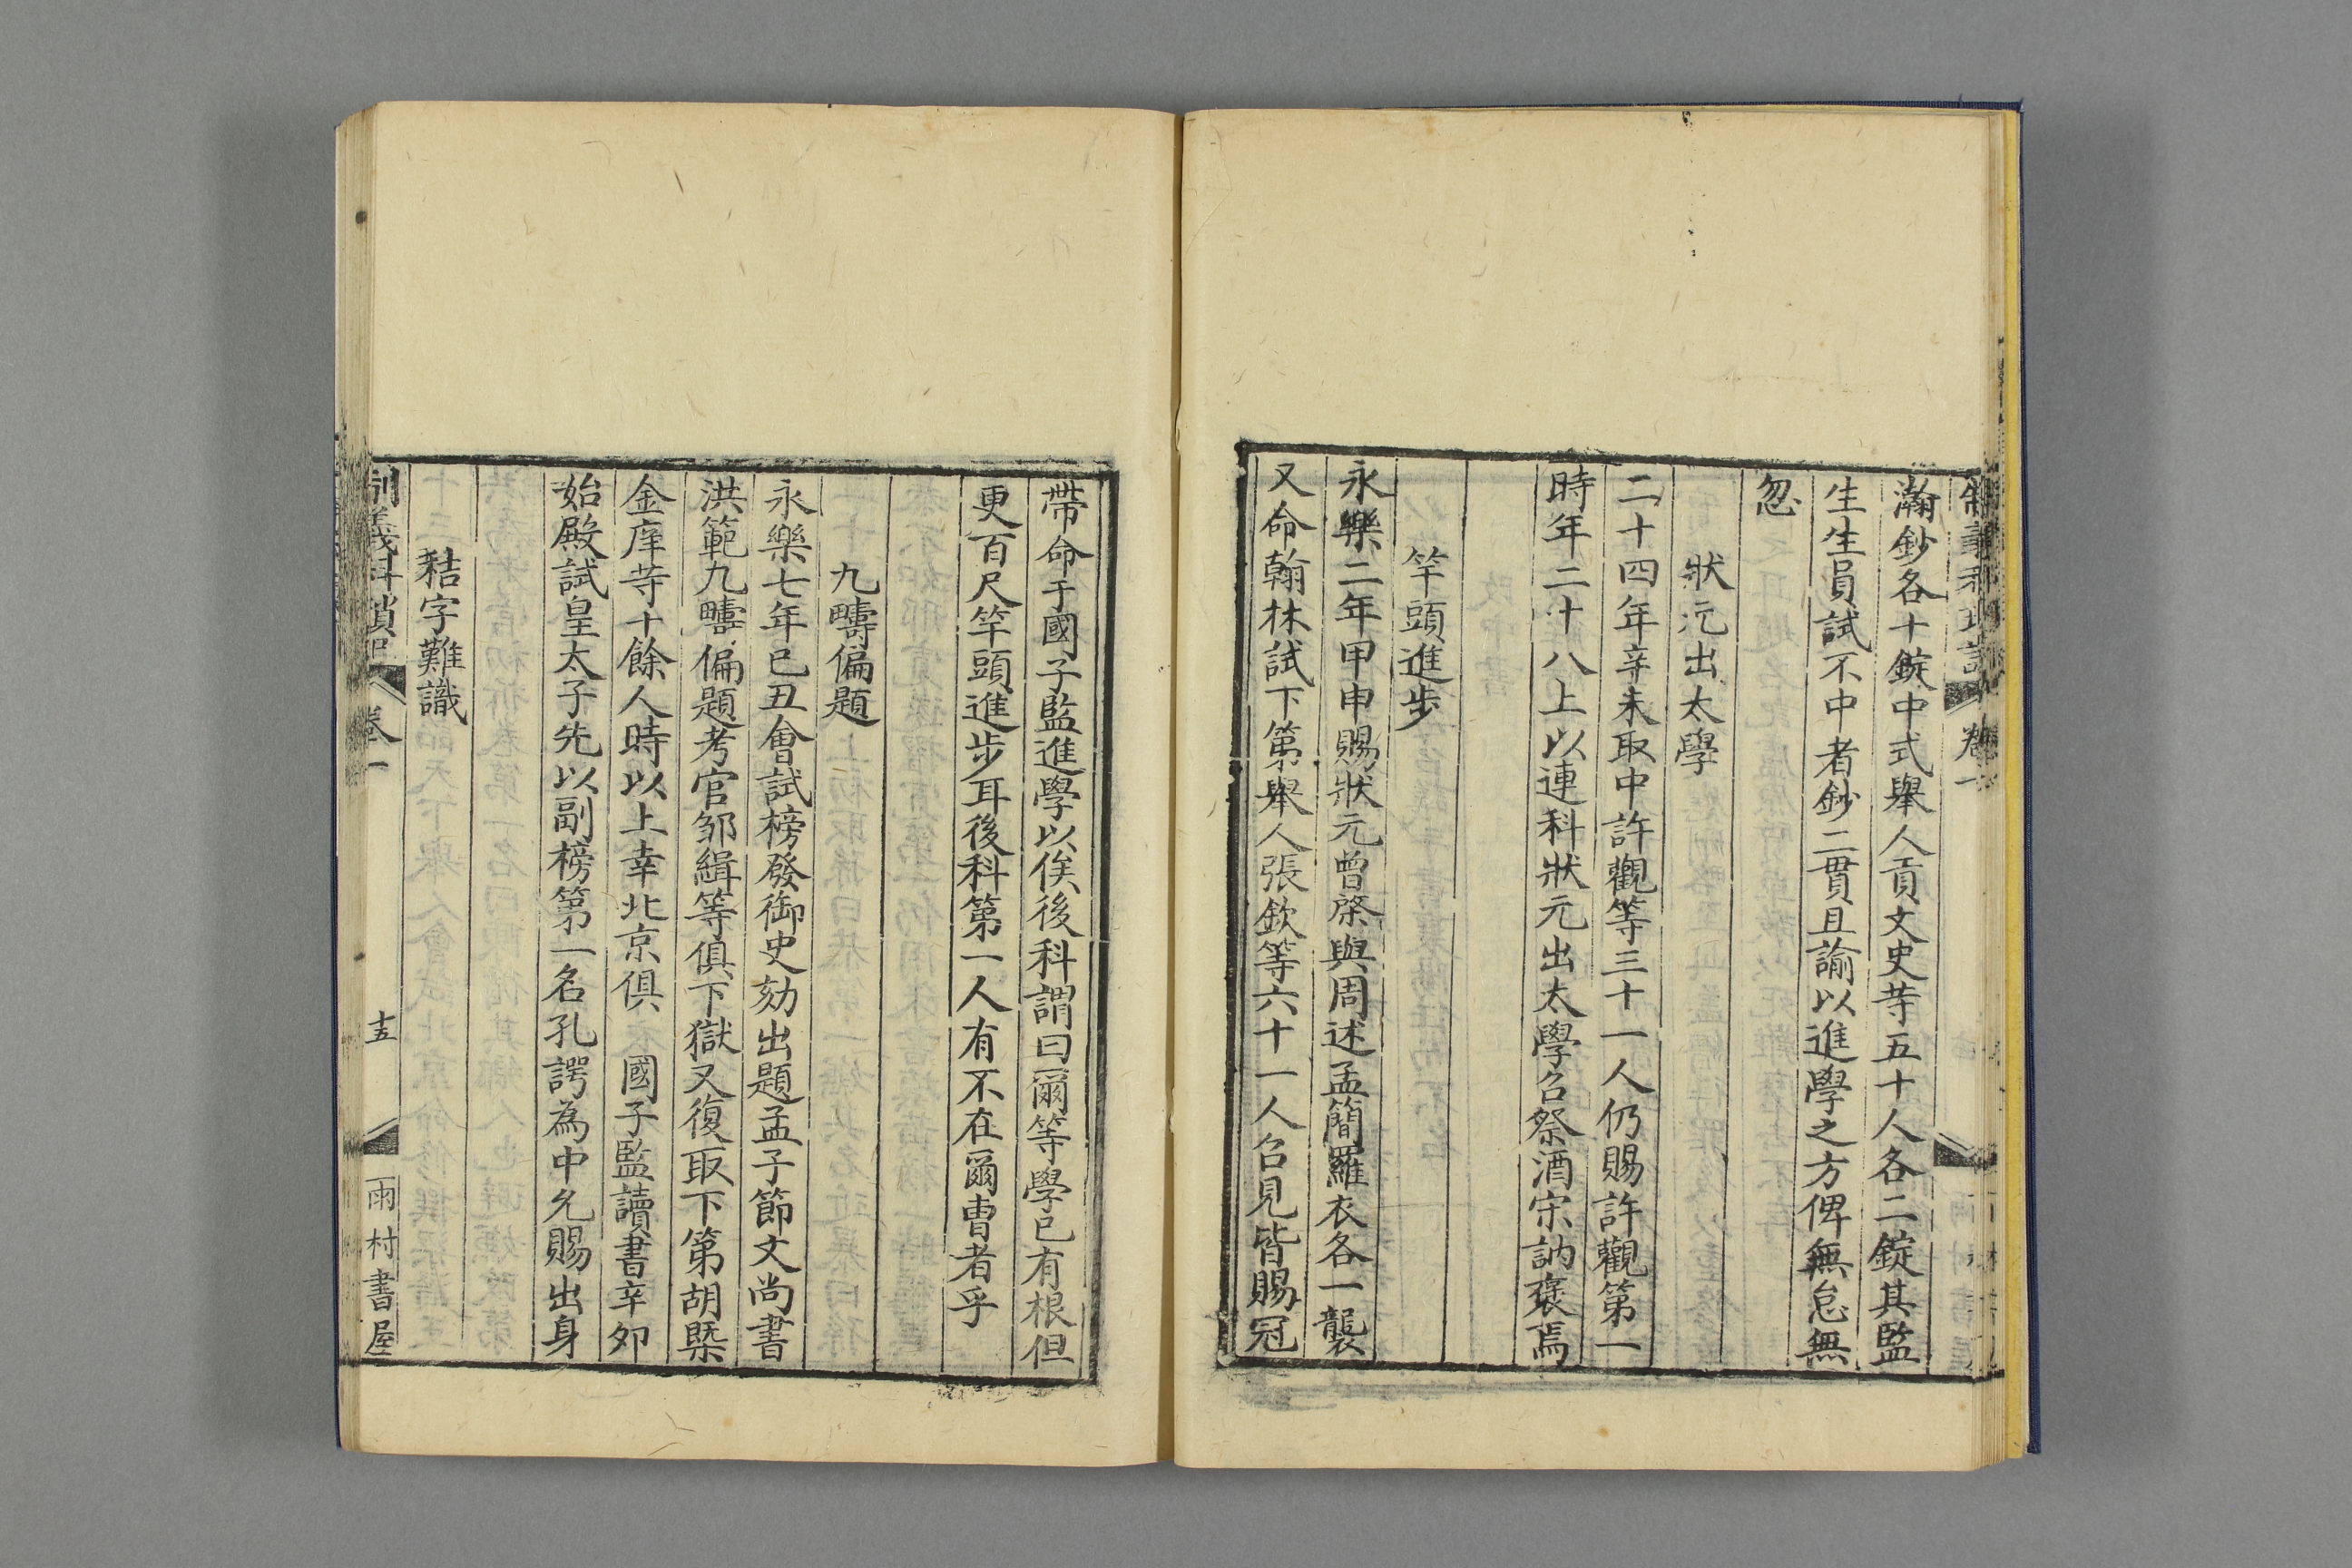 瀚鈔各十錠中式舉人貢文史䓁五十人各二錠其監
生生員試不中者鈔二貫且諭以進學之方俾無怠無
忽
狀元出太學
二十四年辛未取中許觀等三十一人仍賜許觀第一
時年二十八上以連科狀元出太學召祭酒宋訥褒焉
竿頭進步
永樂二年甲申賜狀元曾棨與周述孟簡羅衣各一襲
又命翰林試下第舉人張欽等六十一人召見皆賜冠
帶命于國子監進學以俟後科謂曰爾等學已有根但
更百尺竿頭進步耳後科第一人有不在爾曹者乎
九疇偏題
永樂七年巳丑會試榜發御史劾出題孟子節文尚書
洪範九疇偏題考官邹緝等俱下獄又復取下第胡㮣
金庠䓁十餘人時以上幸北京俱 國子監讀書辛夘
始殿試皇太子先以副榜第一名孔諤為中允賜出身
秸字難識
卷一
十五
雨村書屋